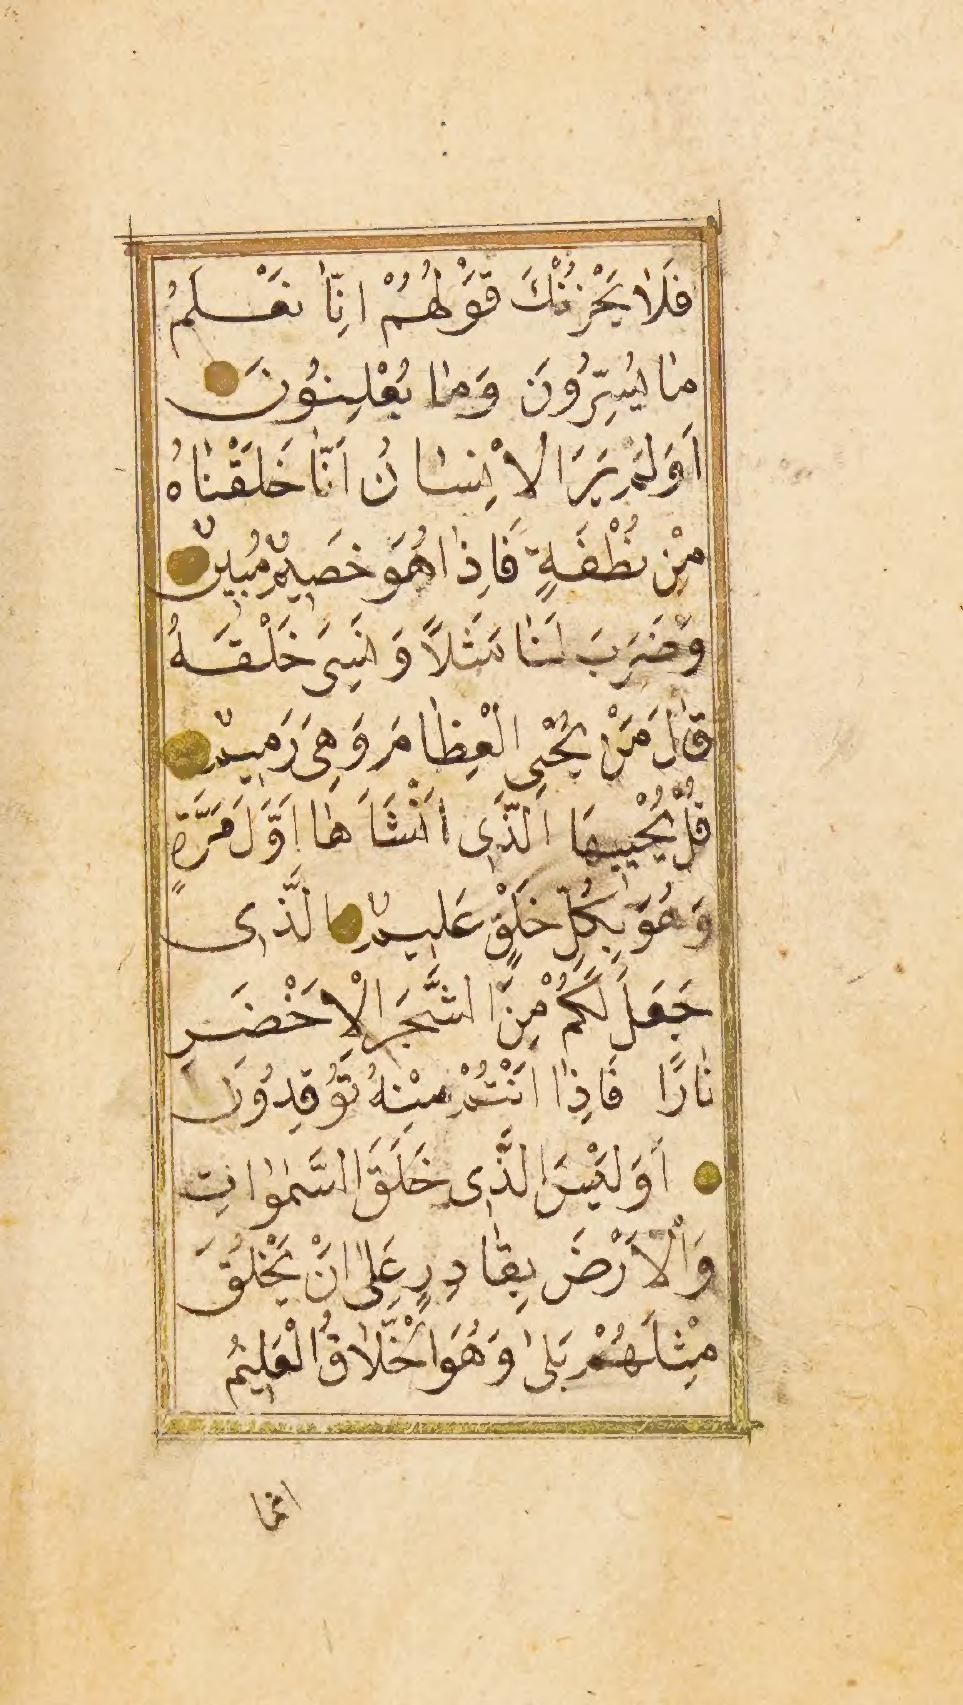 فَلَا يَحْزُنْكَ قَوْلُهُمْ اِنَّا نَعْلَمُ
مَا يُسِرُّونَ وَمَا يُعْلِنُونَ
اَوَلَمْ يَرَ الْاِنْسَانُ اَنَّا خَلَقْنَاهُ
مِنْ نُطْفَةٍ فَاِذَا هُوَ خَصِيمٌ مُبِينٌ
وَضَرَبَ لَنَا مَثَلًا وَنَسِيَ خَلْقَهُ
قَالَ مَنْ يُحْيِي الْعِظَامَ وَهِيَ رَمِيمٌ
قُلْ يُحْيِيهَا الَّذِى اَنْشَاَهَا اَوَّلَ مَرَّةٍ
وَهُوَ بِكُلِّ خَلْقٍ عَلِيمٌ الَّذِى
جَعَلَ لَكُمْ مِنَ الشَّجَرِ الْاَخْضَرِ
نَارًا فَاِذَا اَنْتُمْ مِنْهُ تُوقِدُونَ
اَوَلَيْسَ الَّذِى خَلَقَ السَّمٰوَاتِ
وَالْاَرْضَ بِقَادِرٍ عَلٰى اَنْ يَخْلُقَ
مِثْلَهُمْ بَلٰى وَهُوَ الْخَلَّاقُ الْعَلِيمُ
انما